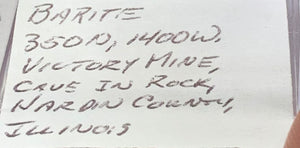 BARITE
350N, 1400W,
VICTORY MINE,
CAVE IN ROCK,
HARDIN COUNTY,
ILLINOIS